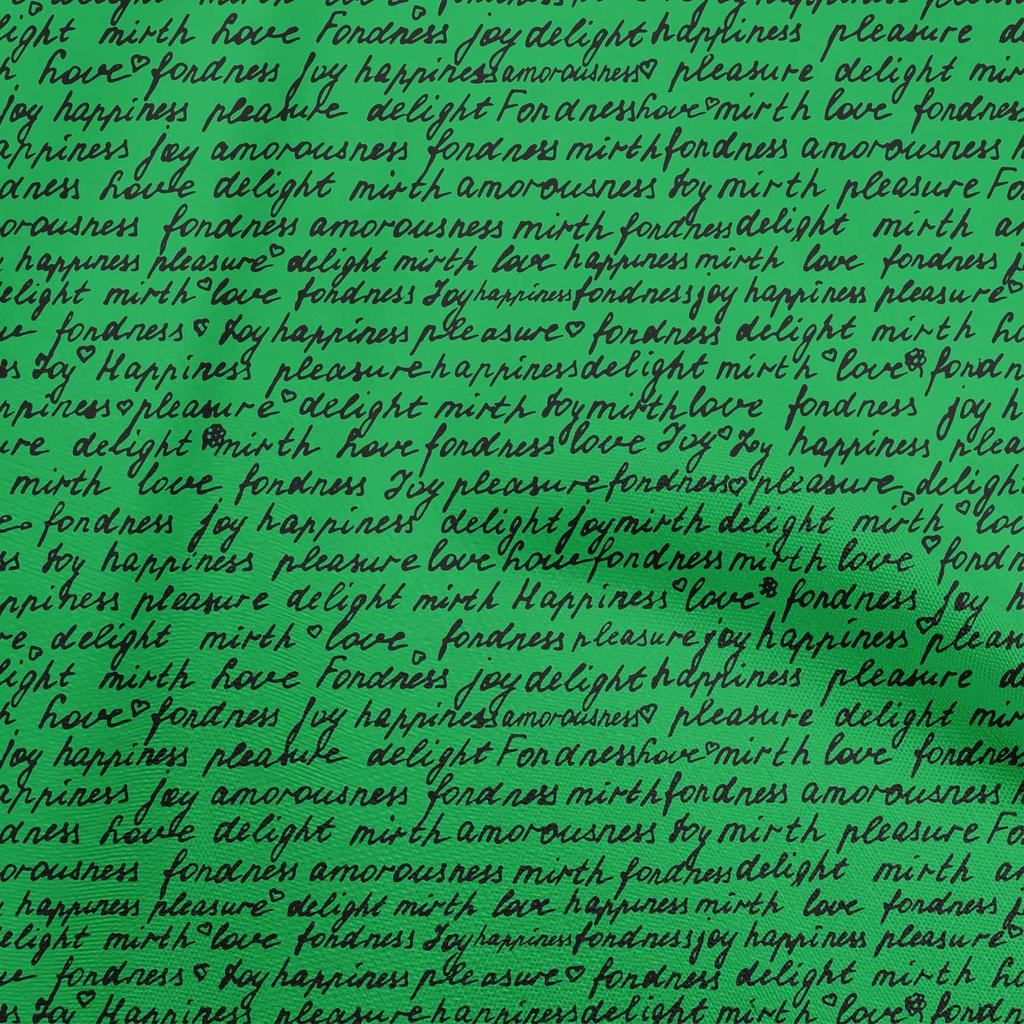 delight mirth love fondness joy happiness pleasure
light mirth love Fondness joy delight happiness pleasure
h love fondness Joy happiness amorousness pleasure delight mir
joy happiness pleasure delight Fondness love mirth love fondness
appiness joy amorousness fondness mirth fondness amorousness h
dness love delight mirth amorousness Joy mirth pleasure Fo
orousness fondness amorousness mirth fondness delight mirth am
happiness pleasure delight mirth love happiness mirth love fondness j
elight mirth love fondness Joy happiness fondness joy happiness pleasure
fondness Joy happiness pleasure fondness delight mirth lo
ss Joy Happiness pleasure happiness delight mirth love fondn
ppiness pleasure delight mirth Joy mirth love fondness joy h
ure delight mirth love fondness love Joy Joy happiness plea
mirth love fondness Joy pleasure fondness pleasure delight
e fondness joy happiness delight joy mirth delight mirth lov
ss Joy happiness pleasure love love fondness mirth love fondn
ppiness pleasure delight mirth Happiness love fondness Joy h
re delight mirth love fondness pleasure joy happiness pleasu
light mirth love Fondness joy delight happiness pleasure de
h love fondness Joy happiness amorousness pleasure delight mir
joy happiness pleasure delight Fondness love mirth love fondness
appiness joy amorousness fondness mirth fondness amorousness h
dness love delight mirth amorousness Joy mirth pleasure Fo
orousness fondness amorousness mirth fondness delight mirth am
happiness pleasure delight mirth love happiness mirth love fondness j
elight mirth love fondness Joy happiness fondness joy happiness pleasure
fondness Joy happiness pleasure fondness delight mirth lo
ss Joy Happiness pleasure happiness delight mirth love fondn